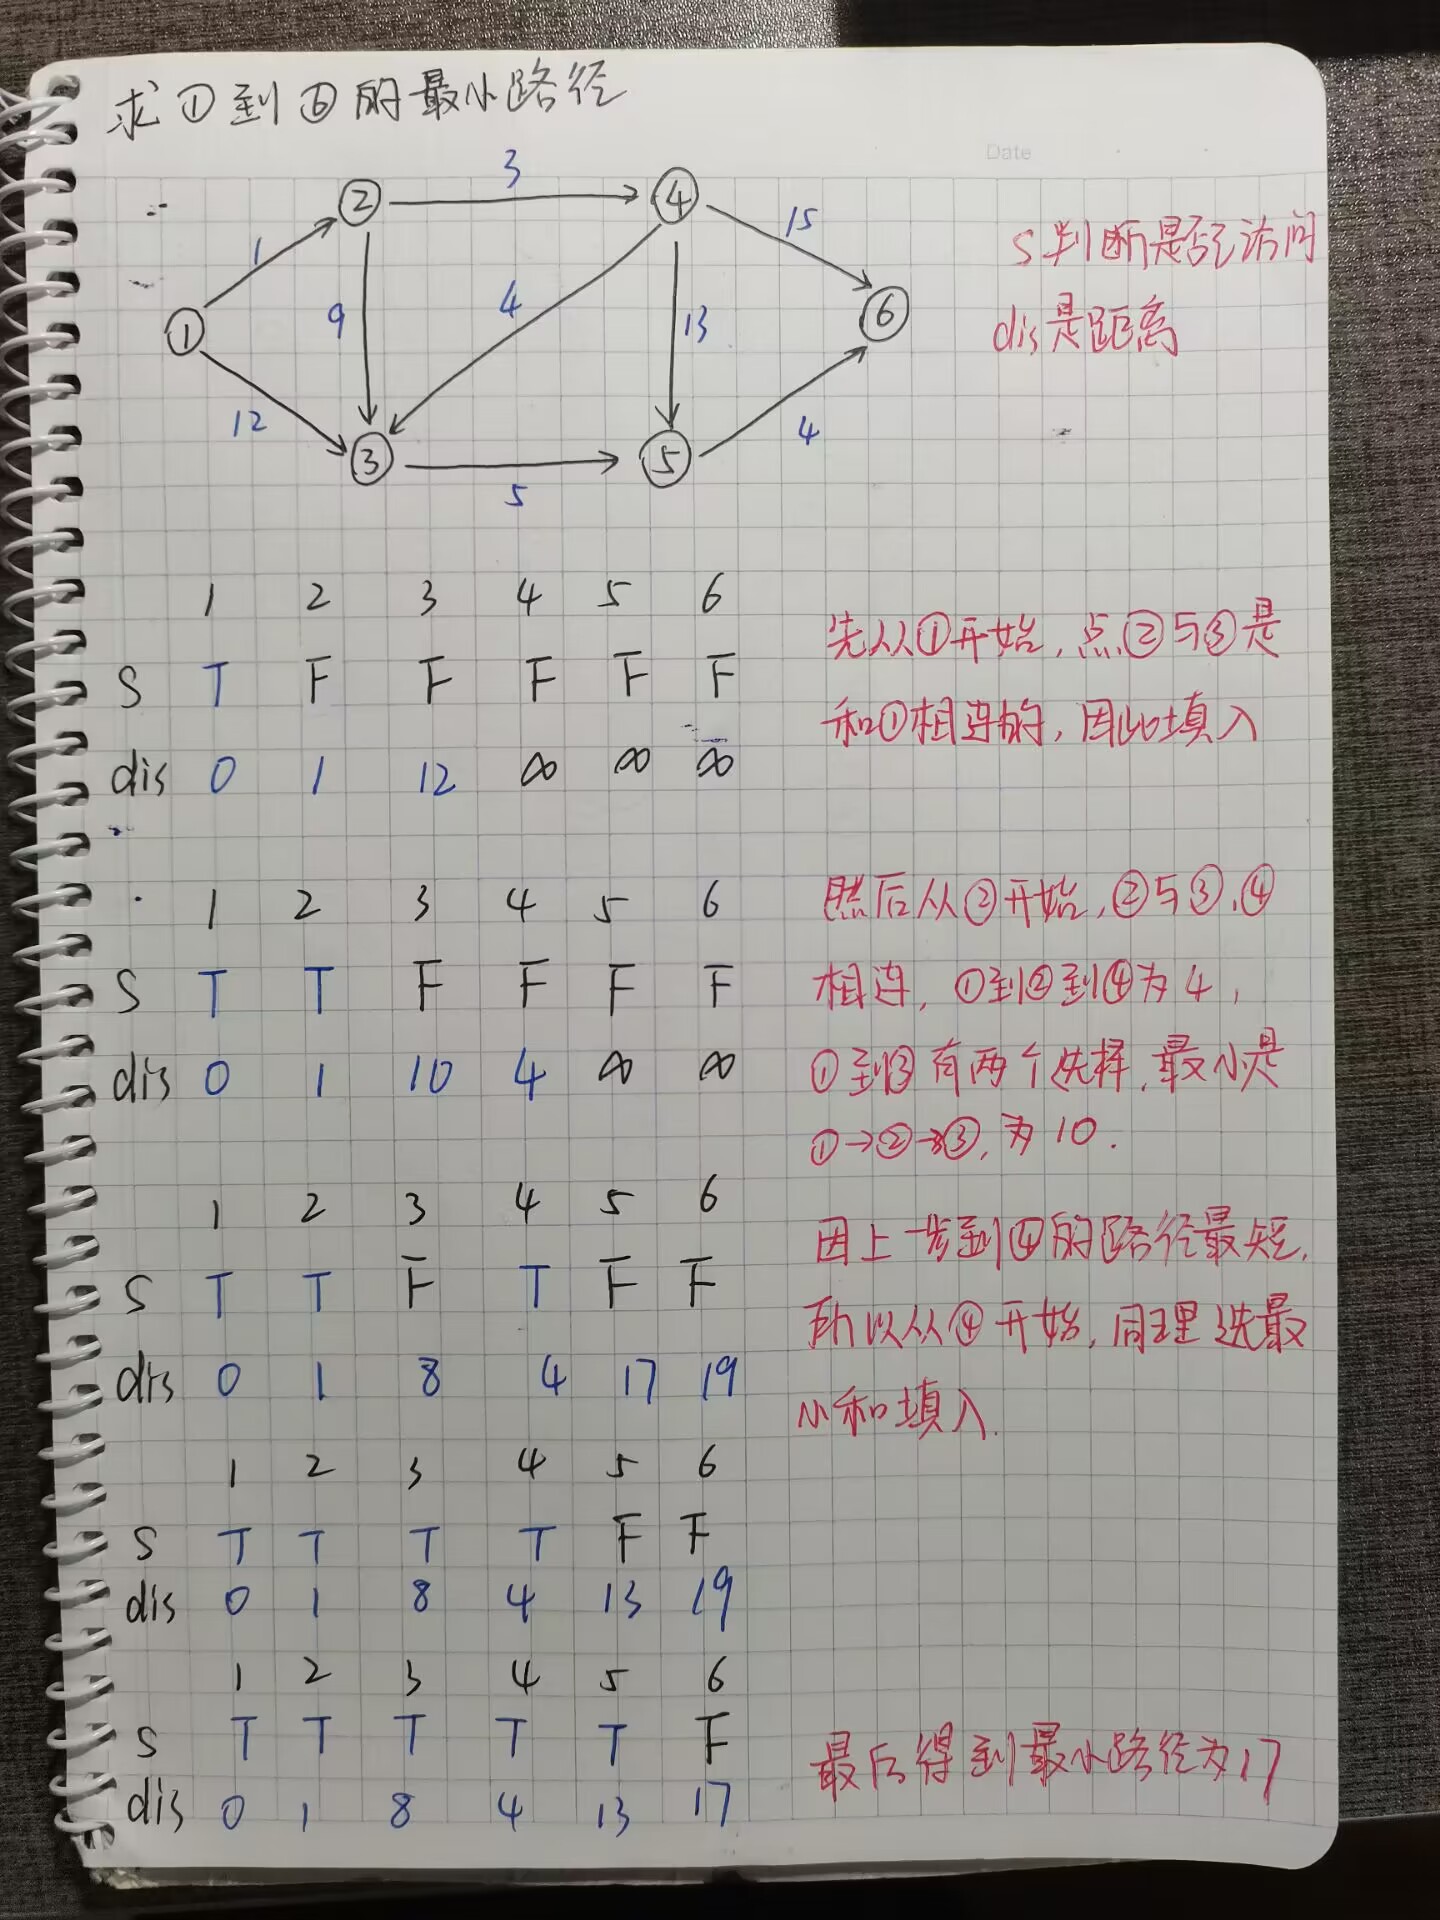 求①到⑥的最小路径
Date
3
② ④
15
1
S判断是否已访问
9 4 13
① ⑥
dis是距离
12 4
③ ⑤
5
1 2 3 4 5 6
S T F F F F F
dis 0 1 12 ∞ ∞ ∞
先从①开始,点②与③是
和①相连的,因此填入
1 2 3 4 5 6
S T T F F F F
dis 0 1 10 4 ∞ ∞
然后从②开始,②与③,④
相连,①到②到④为4,
①到③有两个选择,最小是
①→②→③,为10.
1 2 3 4 5 6
S T T F T F F
dis 0 1 8 4 17 19
因上一步到④的路径最短,
所以从④开始,同理选最
小和填入.
1 2 3 4 5 6
S T T T T F F
dis 0 1 8 4 13 19
1 2 3 4 5 6
S T T T T T F
dis 0 1 8 4 13 17
最后得到最小路径为17